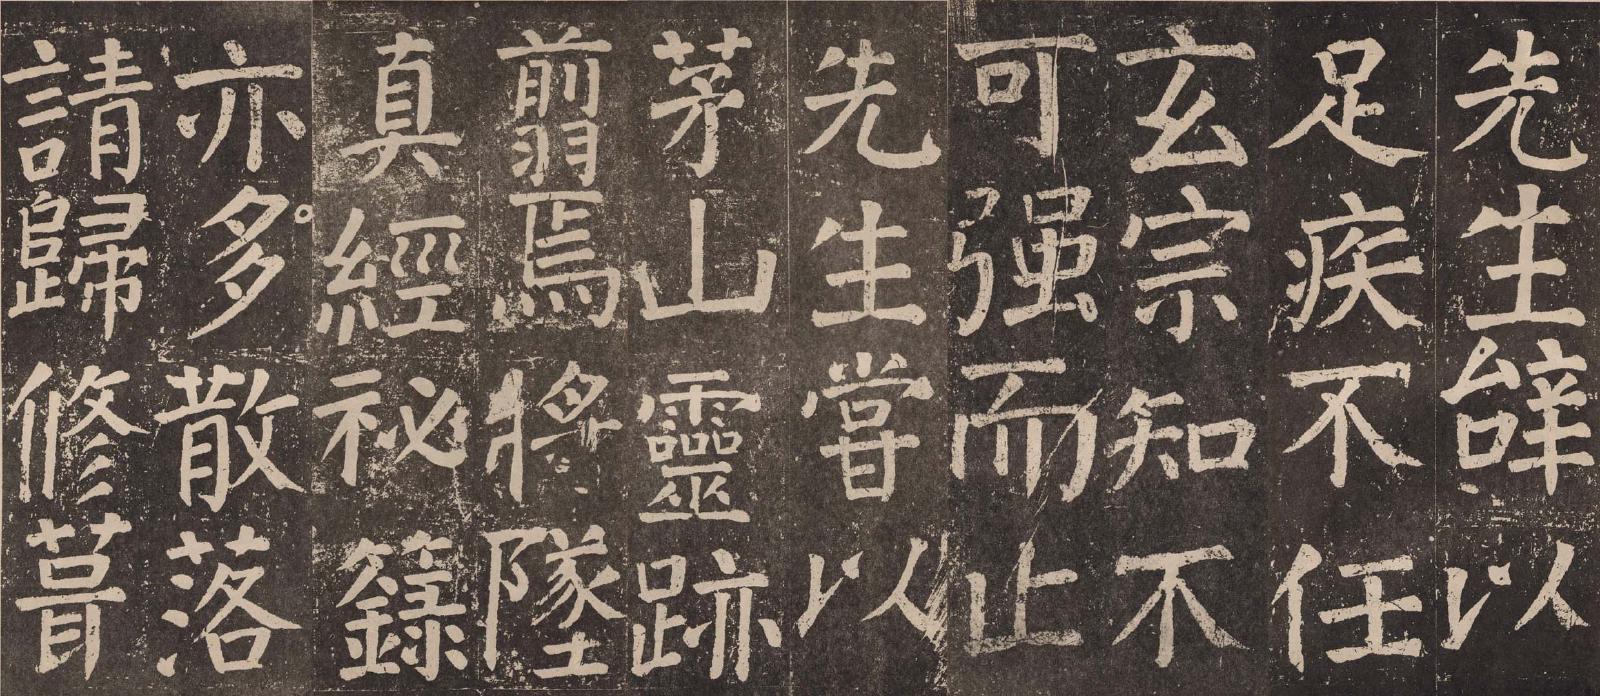 先生辝以
足疾不任
玄宗知不
可强而止
先生嘗以
茅山靈跡
翦焉將墜
真經祕籙
亦多散落
請歸修葺